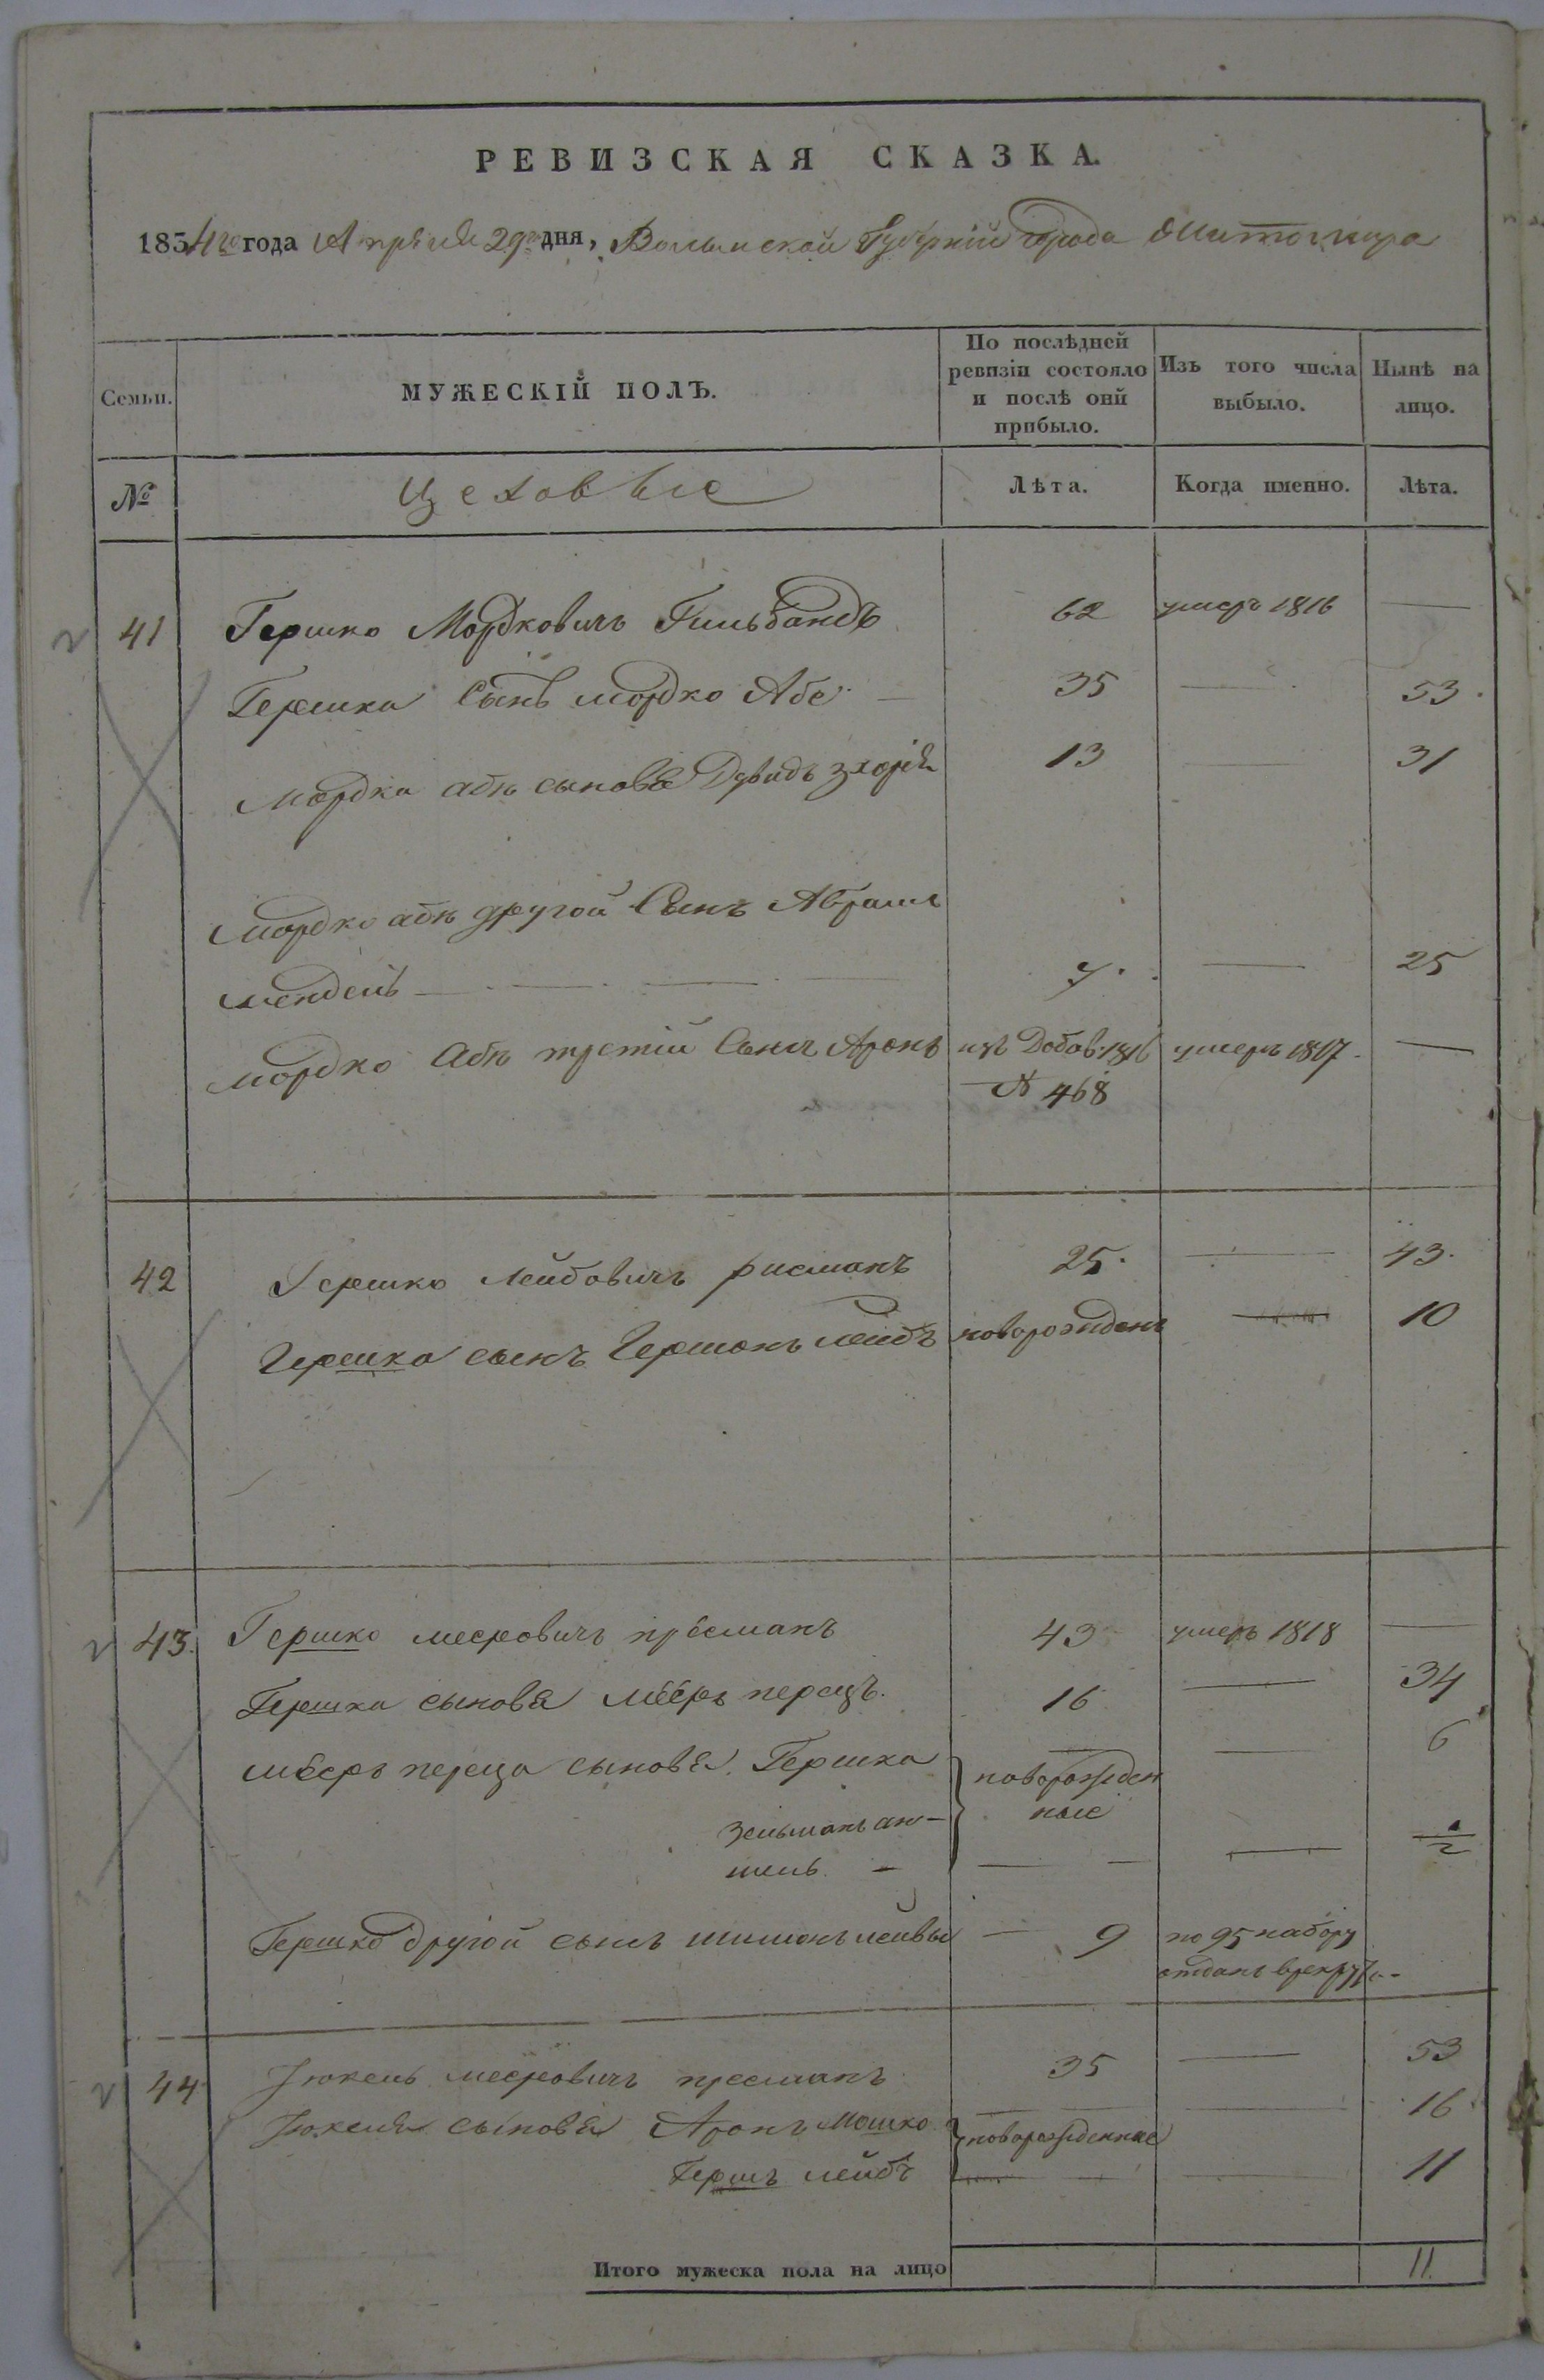 РЕВИЗСКАЯ СКАЗКА.
1834го года Апреля 29го дня, Волынской Губерніи города Житомира
Семьи.
МУЖЕСКІЙ ПОЛЪ.
По послѣдней ревизіи состояло и послѣ оній прибыло.
Изъ того числа выбыло.
Нынѣ на лицо.
№
Цеховые
Лѣта.
Когда именно.
Лѣта.
41 Гершко Мордковичъ Гильбандъ 62 умеръ 1816 —
Гершка Сынъ мордко Абе — 35 — 53.
Мордка абы сыновья Дувидъ 13 — 31
Мордко абы другой Сынъ Абрамъ
мендель — 7. — 25
мордко Абы третій Сынъ Аронъ изъ Добав. 1816 умеръ 1817 —
№ 468
42 Гершко Лейбовичъ рисманъ 25. — 43.
Гершка сынъ Гершонъ лейбъ новорожденъ — 10
43. Гершко мееровичъ пресманъ 43 умеръ 1818 —
Гершка сыновя мееръ перецъ. 16 — 34
мееръ переца сыновя Гершка новорожден — 6
Зельманъ ан- ные
шель — — — — 2
Гершко другой сынъ шимонъ лейвы — 9 по 95 набору
отданъ врекруты
44 Іокель мееровичъ пресманъ 35 — 53
Іокеля сыновя Аронъ Мошко новорожденные — 16
Гершъ лейбъ — — 11
Итого мужеска пола на лицо 11.